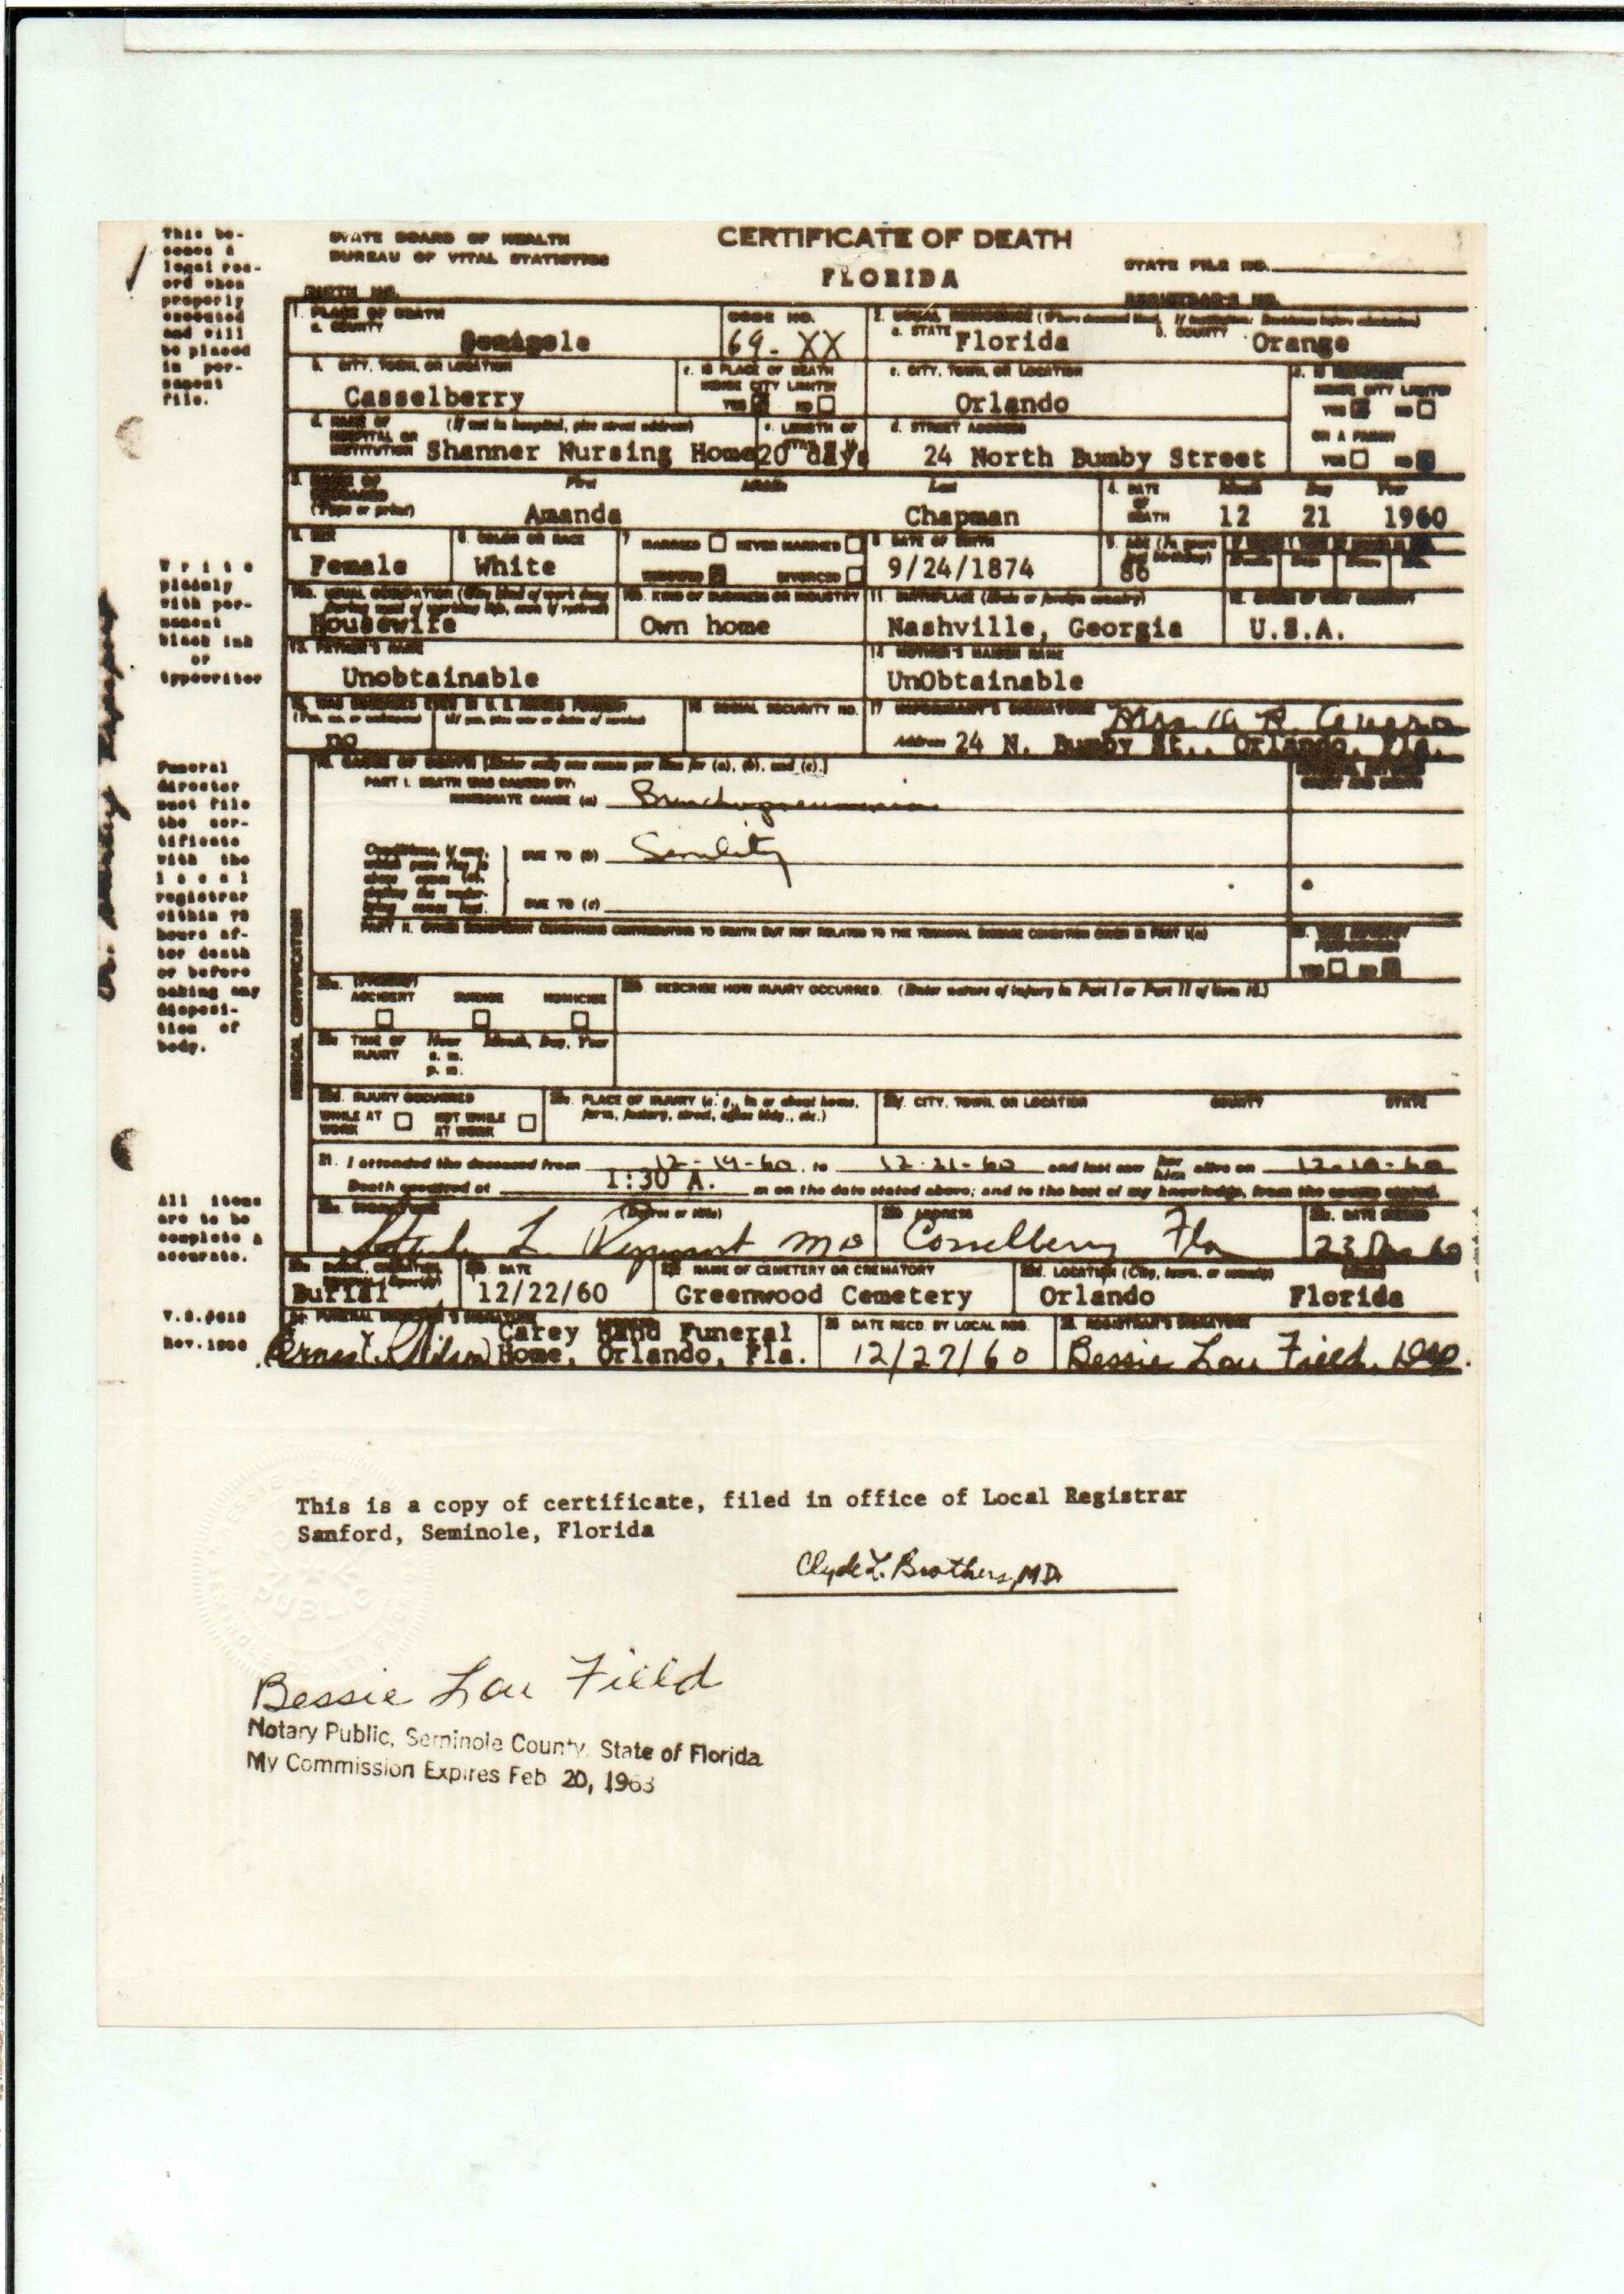 CERTIFICATE OF DEATH
FLORIDA
STATE BOARD OF HEALTH
BUREAU OF VITAL STATISTICS
STATE FILE NO.
BIRTH NO.
REGISTRAR'S NO.
This be-
comes a
legal rec-
ord when
properly
executed
and will
be placed
in per-
manent
file.
1. PLACE OF DEATH
a. COUNTY
Seminole
CODE NO.
69-XX
a. STATE Florida
b. COUNTY Orange
b. CITY, TOWN, OR LOCATION
Casselberry
c. IS PLACE OF DEATH
INSIDE CITY LIMITS?
YES NO
c. CITY, TOWN, OR LOCATION
Orlando
INSIDE CITY LIMITS?
YES NO
d. NAME OF (If not in hospital, give street address)
HOSPITAL OR
INSTITUTION Shanner Nursing Home
e. LENGTH OF
20 days
d. STREET ADDRESS
24 North Bumby Street
ON A FARM?
YES NO
3. NAME OF
DECEASED
(Type or print)
First Middle Last
Amanda Chapman
4. DATE
OF
DEATH
Month Day Year
12 21 1960
5. SEX
Female
6. COLOR OR RACE
White
7. MARRIED NEVER MARRIED
WIDOWED DIVORCED
8. DATE OF BIRTH
9/24/1874
9. AGE (In years
last birthday)
86
Housewife
10b. KIND OF BUSINESS OR INDUSTRY
Own home
11. BIRTHPLACE (State or foreign country)
Nashville, Georgia
U.S.A.
13. FATHER'S NAME
Unobtainable
14. MOTHER'S MAIDEN NAME
UnObtainable
no
16. SOCIAL SECURITY NO.
17. INFORMANT'S SIGNATURE
Address 24 N. Bumby St., Orlando, Fla.
Write
plainly
with per-
manent
black ink
or
typewriter
Funeral
director
must file
the cer-
tificate
with the
local
registrar
within 72
hours af-
ter death
or before
making any
disposi-
tion of
body.
MEDICAL CERTIFICATION
18. CAUSE OF DEATH [Enter only one cause per line for (a), (b), and (c).]
PART I. DEATH WAS CAUSED BY:
IMMEDIATE CAUSE (a) Bronchopneumonia
Conditions, if any,
which gave rise to
above cause (a),
stating the under-
lying cause last.
DUE TO (b) Senility
DUE TO (c)
PART II. OTHER SIGNIFICANT CONDITIONS CONTRIBUTING TO DEATH BUT NOT RELATED TO THE TERMINAL DISEASE CONDITION GIVEN IN PART I(a)
YES NO
ACCIDENT SUICIDE HOMICIDE
20b. DESCRIBE HOW INJURY OCCURRED. (Enter nature of injury in Part I or Part II of item 18.)
20c. TIME OF INJURY
Hour Month, Day, Year
a. m.
p. m.
20d. INJURY OCCURRED
WHILE AT WORK NOT WHILE AT WORK
20e. PLACE OF INJURY (e. g., in or about home,
farm, factory, street, office bldg., etc.)
20f. CITY, TOWN, OR LOCATION COUNTY STATE
21. I attended the deceased from 12-19-60, to 12-21-60 and last saw her him alive on
Death occurred at 1:30 A. m on the date stated above; and to the best of my knowledge, from the causes stated.
All items
are to be
complete &
accurate.
(Degree or title)
MD
22b. ADDRESS
Casselberry Fla
22c. DATE SIGNED
23 Dec 60
Burial
23b. DATE
12/22/60
23c. NAME OF CEMETERY OR CREMATORY
Greenwood Cemetery
23d. LOCATION (City, town, or county) (State)
Orlando Florida
24. FUNERAL DIRECTOR'S SIGNATURE ADDRESS
Carey Hand Funeral
Home, Orlando, Fla.
25. DATE RECD. BY LOCAL REG.
12/27/60
26. REGISTRAR'S SIGNATURE
Bessie Lou Field,
This is a copy of certificate, filed in office of Local Registrar
Sanford, Seminole, Florida
Clyde L. Brothers, MD.
Bessie Lou Field
Notary Public, Seminole County, State of Florida
My Commission Expires Feb 20, 1963